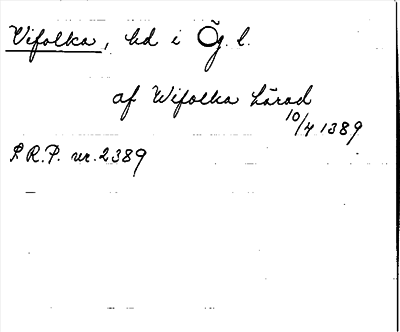 Vifolka, hd i Ög. l.
af Wifolka härad
10/4 1389
S R.P. nr. 2389